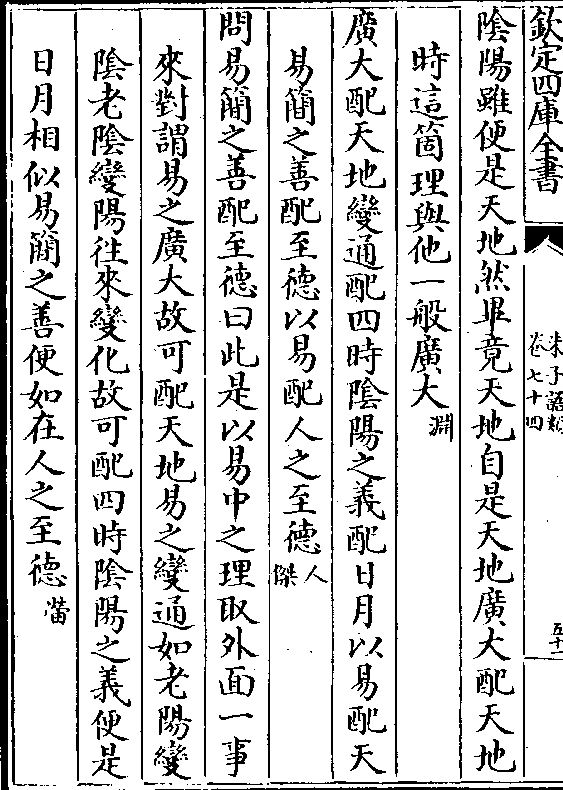 欽定四庫全書
朱子語類
卷七十四
五十一
陰陽雖便是天地然畢竟天地自是天地廣大配天地
時這箇理與他一般廣大淵
廣大配天地變通配四時陰陽之義配日月以易配天
易簡之善配至德以易配人之至德人傑
問易簡之善配至德曰此是以易中之理取外面一事
來對謂易之廣大故可配天地易之變通如老陽變
陰老陰變陽往來變化故可配四時陰陽之義便是
日月相似易簡之善便如在人之至德㽦